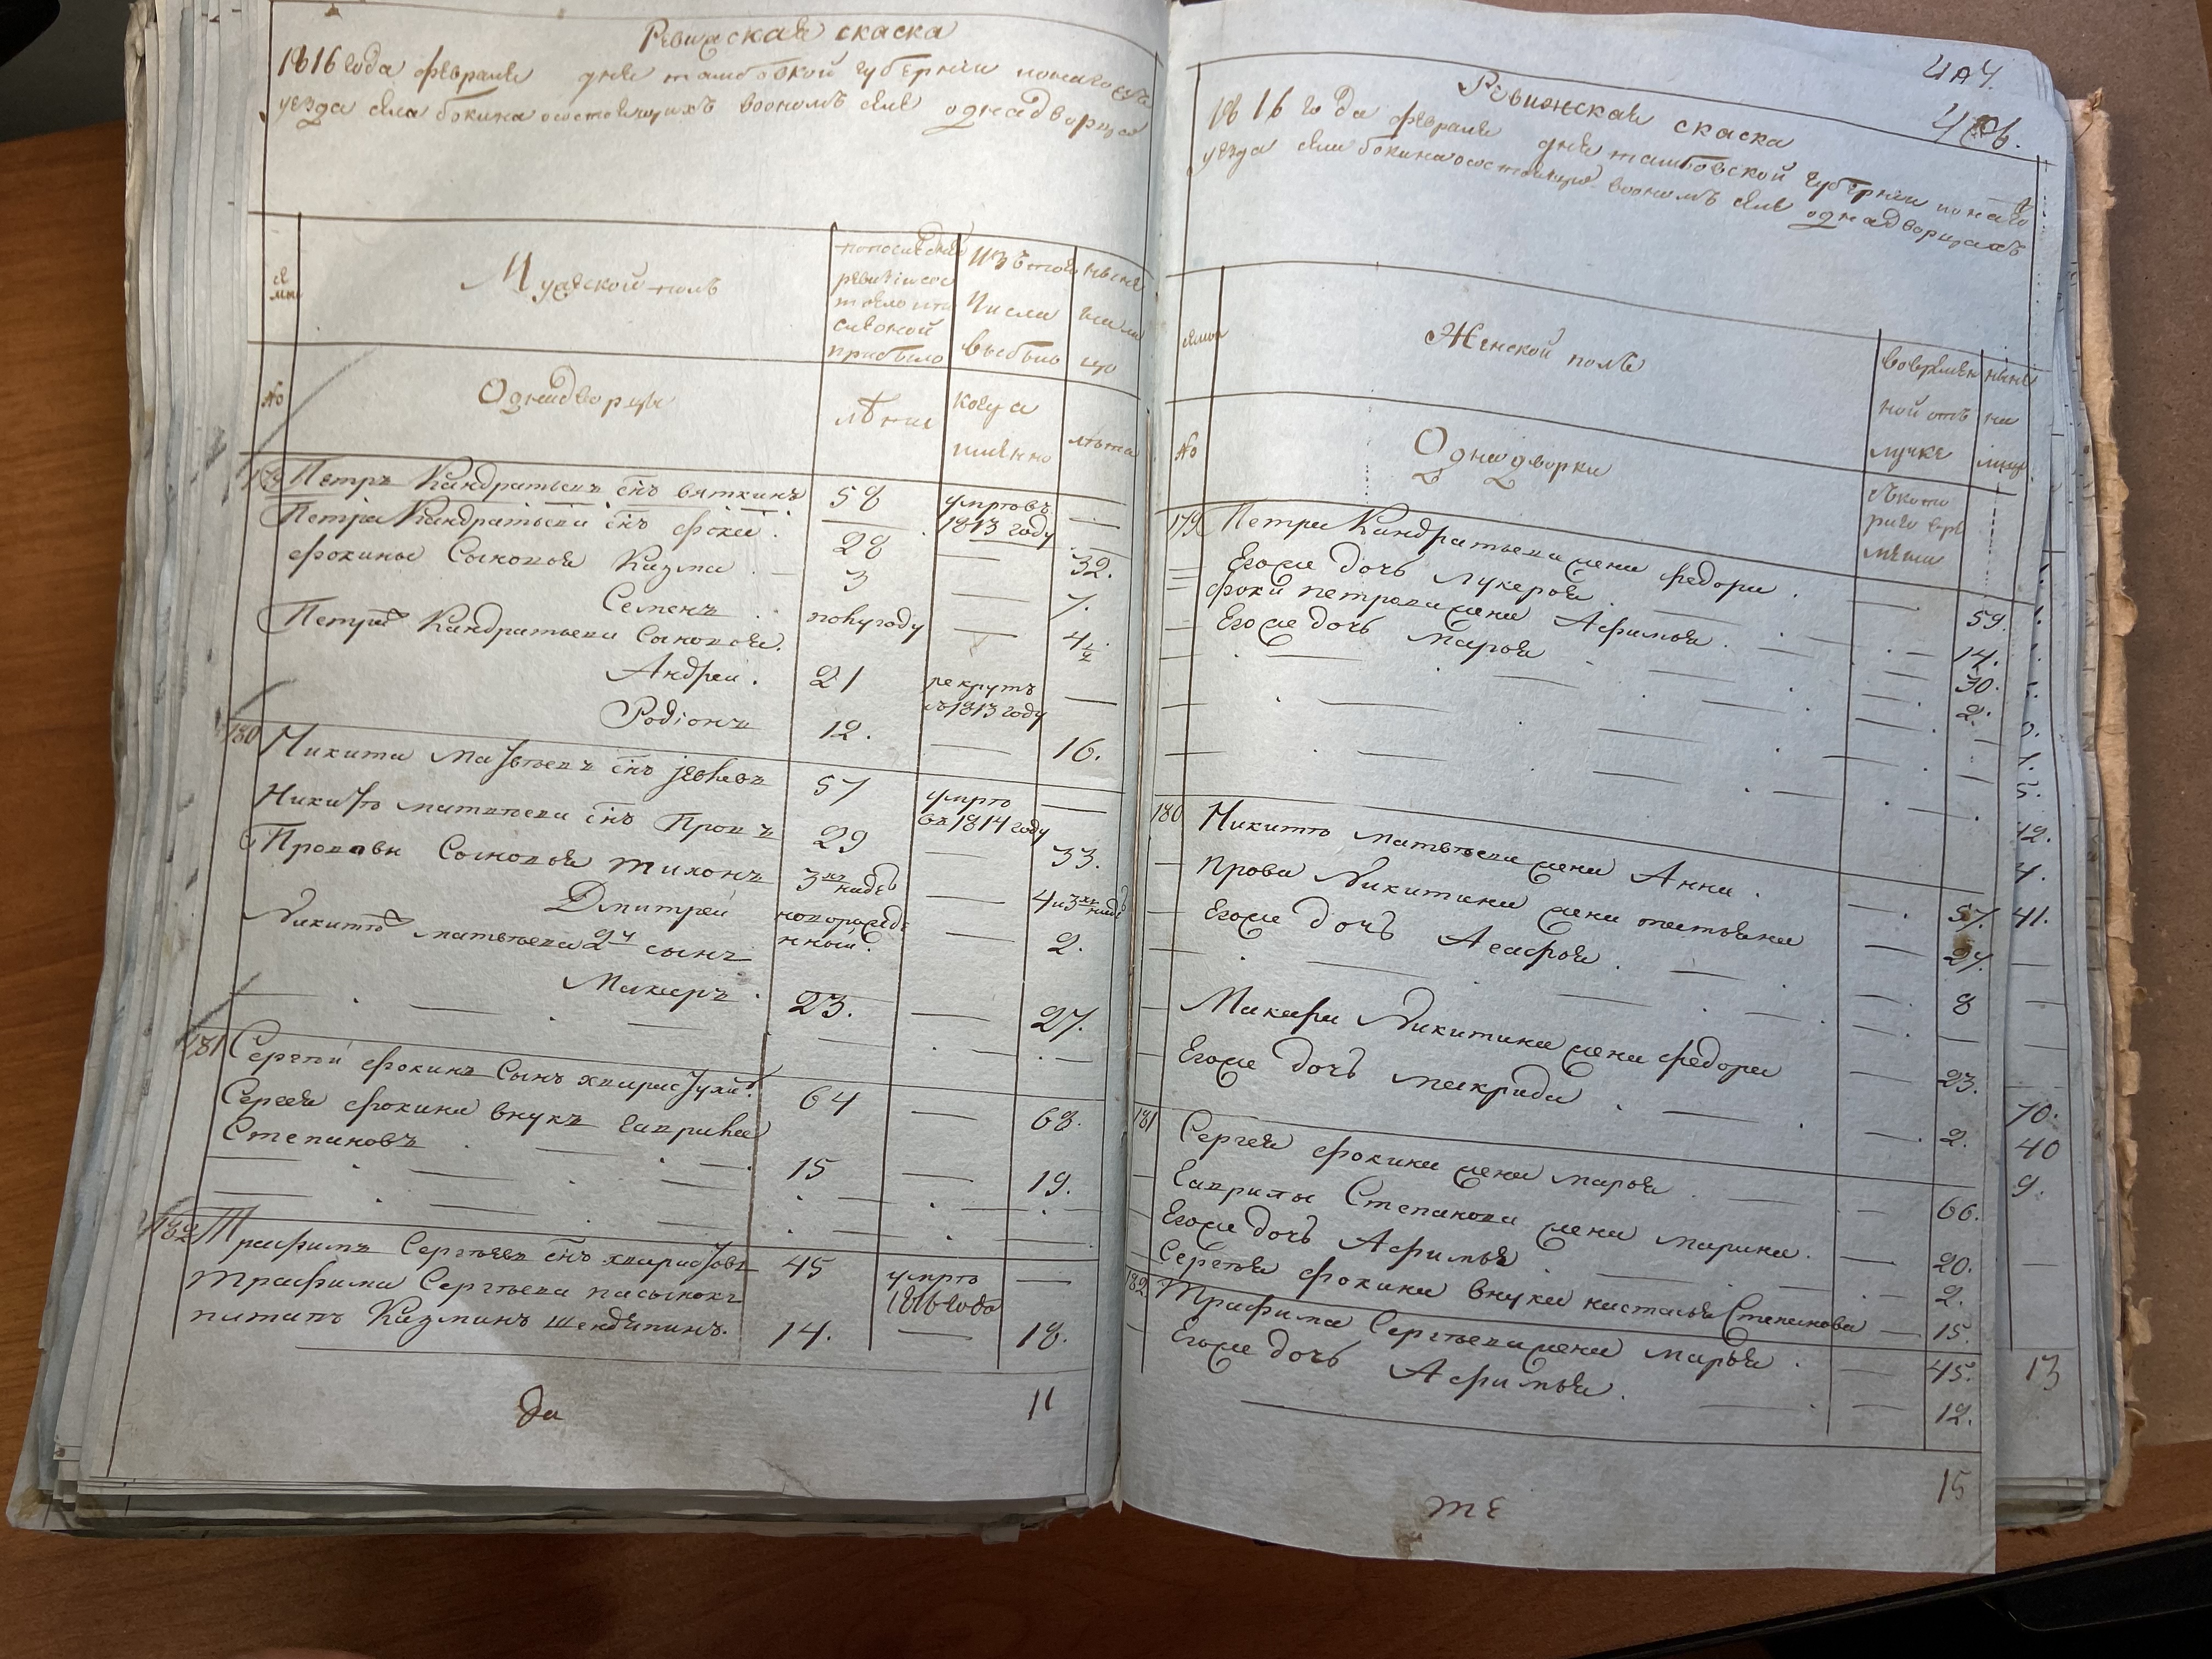 Ревизская скаска
1816 года февраля дня тамбовской губернии
уезда села бокина состоящихъ воономъ селе однадворцах
Мужской полъ
попоследней
ревизии сос
тояло или
После оной
прибыло
изъ того
числа
выбыло
ныне
на ли
цо
№
Однадворцы
лета
когда
имянно
лета
179 Петръ Кандратьевъ сынъ вяткинъ 58 умре въ 1813 году —
Петра Кандратьева сынъ фокей 28 — 32.
фокины Сыновья Казма 3 — 7.
Семенъ полугоду — 4 1/2
Петра Кандратьева Сыновья.
Андрей. 21 рекрутъ в 1813 году —
Родіонъ 12. — 16.
180 Никита Матвеевъ сынъ 57 умре въ 1814 году —
Никиты матвеева сынъ Провъ 29 — 33.
Прововы Сыновья тихонъ 3 — 4
Дмитрей новорожденный — 2.
Никиты матвеева 2й сынъ
Макаръ. 23. — 27.
181 Сергей фокинъ Сынъ 64 — 68.
Сергея фокина внукъ гаврила
Степановъ 15 — 19.
182 Трафимъ Сергеевъ сынъ 45 умре 1816 года —
Трафима Сергеева пасынокъ
Казминъ 14. — 18.
да 11
414.
406.
Ревизская скаска
1816 года февраля дня тамбовской губернии
уезда села бокина состоящихъ воономъ селе однадворцахъ
Женской полъ
вовремен
ной отъ
лучке
ското
раго вре
мени
ныне
на
лицо
№
Однадворки
179 Петра Кандратьева жена федора. — 59.
Егоже дочь лукерья — 14.
фоки петрова жена Афимья. — 30.
Егоже дочь марья — 2.
180 Никиты матвеева жена Анна. — 57.
Прова Никитина жена татьяна — 27.
Егоже дочь Агафья. — 8
Макара Никитина жена федора — 23.
Егоже дочь макрида — 2.
181 Сергея фокина жена марья — 66.
гаврилы Степанова жена марина. — 20.
Егоже дочь Афимья — 2.
Сергея фокина внука настасья Степанова — 15.
182 Трафима Сергеева жена марья. — 45.
Егоже дочь Афимья. — 12.
те 15
12.
4.
41.
70.
40
9.
13